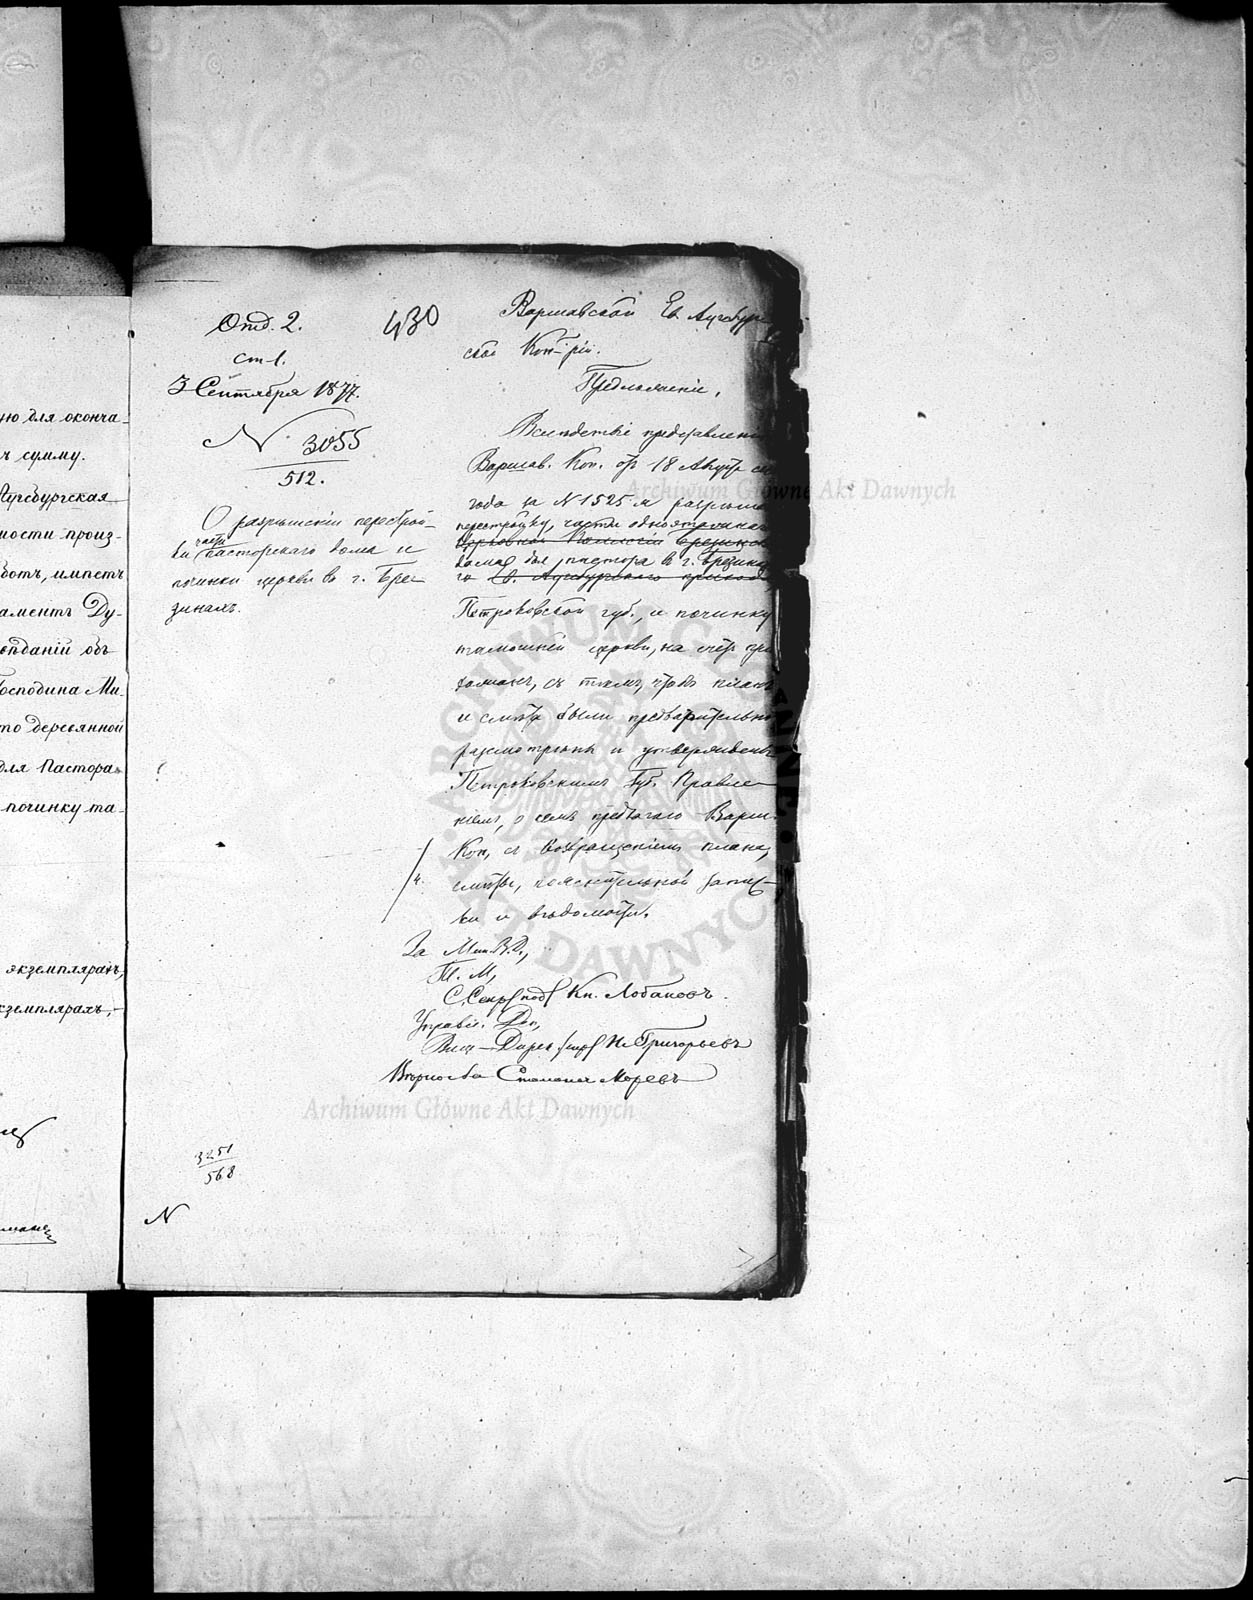 ую для оконча-
ъ сумму.
Аугсбургская
ности произ-
ботъ, имѣетъ
аментъ Ду-
ѣданій объ
Господина Ми-
то деревянной
для Пастора
починку та-
экземплярахъ,
кземплярахъ,
Отд. 2.
ст. 1.
3 Сентября 1877.
N 3055
512.
О разрѣшеніи перестрой-
ки части Пасторскаго дома и
починки церкви въ г. Бре-
зинахъ.
3251
568
N
430
Варшавской Ев. Аугсбург
ской Кон-ріи.
Предложеніе,
Вслѣдствіе представленія
Варшав. Кон. отъ 18 Августа
года за N 1525 я разрѣшаю
перестройку, части одноэтажнаго
Церковной Коллегіи Брезинск
дома для пастора въ г. Брезинах
го Ев. Аугсбургскаго прихода
Петроковской губ., и починку
тамошней церкви, на счетъ при
хожанъ, съ тѣмъ, чтобъ планъ
и смѣта были предварительно
разсмотрѣны и утверждены
Петроковскимъ Губ. Правле-
ніемъ, о семъ предлагаю Варш.
Кон, съ возвращеніемъ плана,
смѣты, пояснительной запис-
ки и вѣдомости.
За Мин. В. Д.,
Т. М,
С. Секр. под. Кн. Лобановъ.
Управл. Деп,
Вице-Дирек. скр. Н. Григорьевъ
Вѣрно: за Столонач. Моревъ
Archiwum Główne Akt Dawnych
ARCHIWUM GŁÓWNE AKT DAWNYCH
Archiwum Główne Akt Dawnych